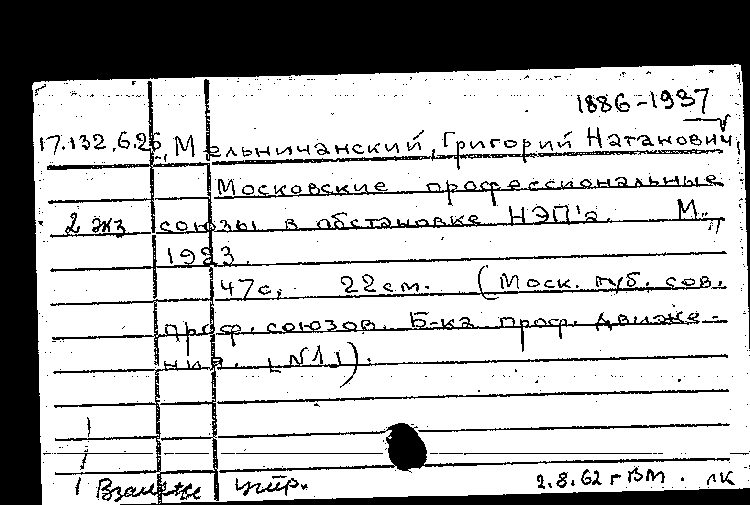 1886-1937
17.132.6.26. Мельничанский, Григорий Натанович,
Московские профессиональные
2 экз союзы в обстановке НЭП'а. М.,
1923.
47с. 22см. (Моск. губ. сов.
проф. союзов. Б-ка проф. движе-
ния. [№1]).
утр.
2.8.62 г ВМ. лк